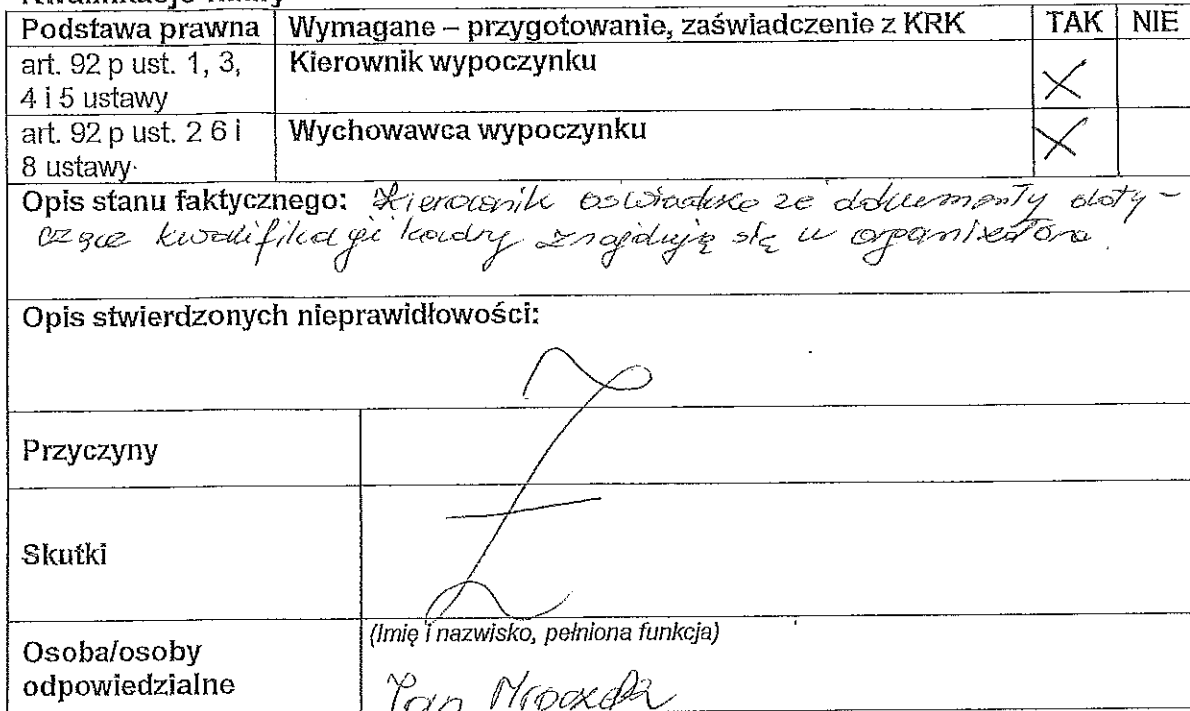 Podstawa prawna Wymagane – przygotowanie, zaświadczenie z KRK TAK NIE
art. 92 p ust. 1, 3, 4 i 5 ustawy Kierownik wypoczynku X
art. 92 p ust. 2 6 i 8 ustawy Wychowawca wypoczynku X
Opis stanu faktycznego: Kierownik oświadcza ze dokumenty doty-
czące kwalifikacji kadry znajdują się u organizatora.
Opis stwierdzonych nieprawidłowości:
Przyczyny
Skutki
(Imię i nazwisko, pełniona funkcja)
Osoba/osoby
odpowiedzialne Pan